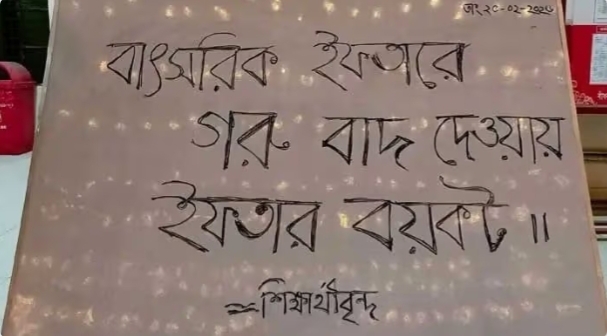 তাং ২৫-০২-২০২৬
বাৎসরিক ইফতারে
গরু বাদ দেওয়ায়
ইফতার বয়কট॥
=শিক্ষার্থীবৃন্দ